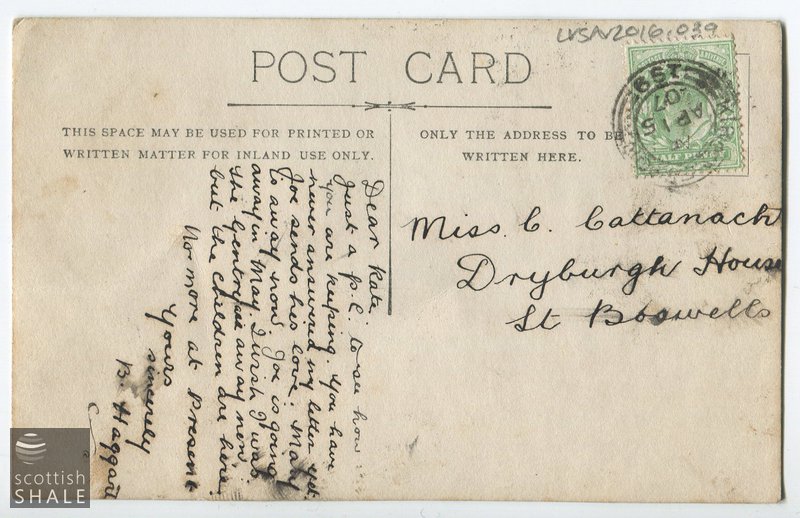 LVSAV2016.039
POST CARD
THIS SPACE MAY BE USED FOR PRINTED OR
WRITTEN MATTER FOR INLAND USE ONLY.
ONLY THE ADDRESS TO BE
WRITTEN HERE.
6 ST
AP 15
07
Miss. C. Cattanach
Dryburgh House
St Boswells
Dear Kate.
Just a p.c. to see how
you are keeping. You have
never answered my letter yet.
Joe sends his love. Mary
is away now. Joe is going
away in May. I wish I was.
the Gentry are away now
but the children are here.
No more at Present
Yours
sincerely
B. Haggart
scottish
SHALE